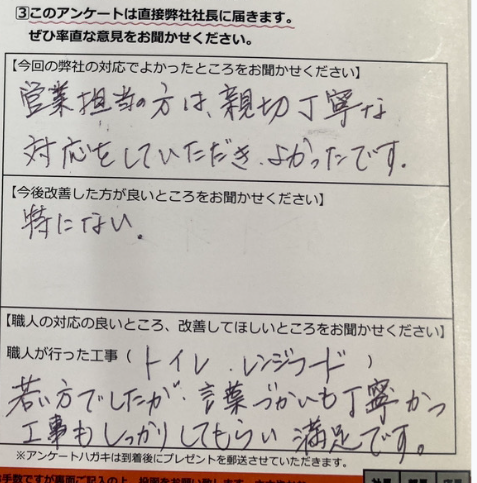 ③このアンケートは直接弊社社長に届きます。
ぜひ率直な意見をお聞かせください。
【今回の弊社の対応でよかったところをお聞かせください】
営業担当の方は、親切丁寧な
対応をしていただき、よかったです。
【今後改善した方が良いところをお聞かせください】
特にない。
【職人の対応の良いところ、改善してほしいところをお聞かせください】
職人が行った工事（トイレ、レンジフード）
若い方でしたが、言葉づかいも丁寧かつ
工事もしっかりしてもらい満足です。
※アンケートハガキは到着後にプレゼントを郵送させていただきます。